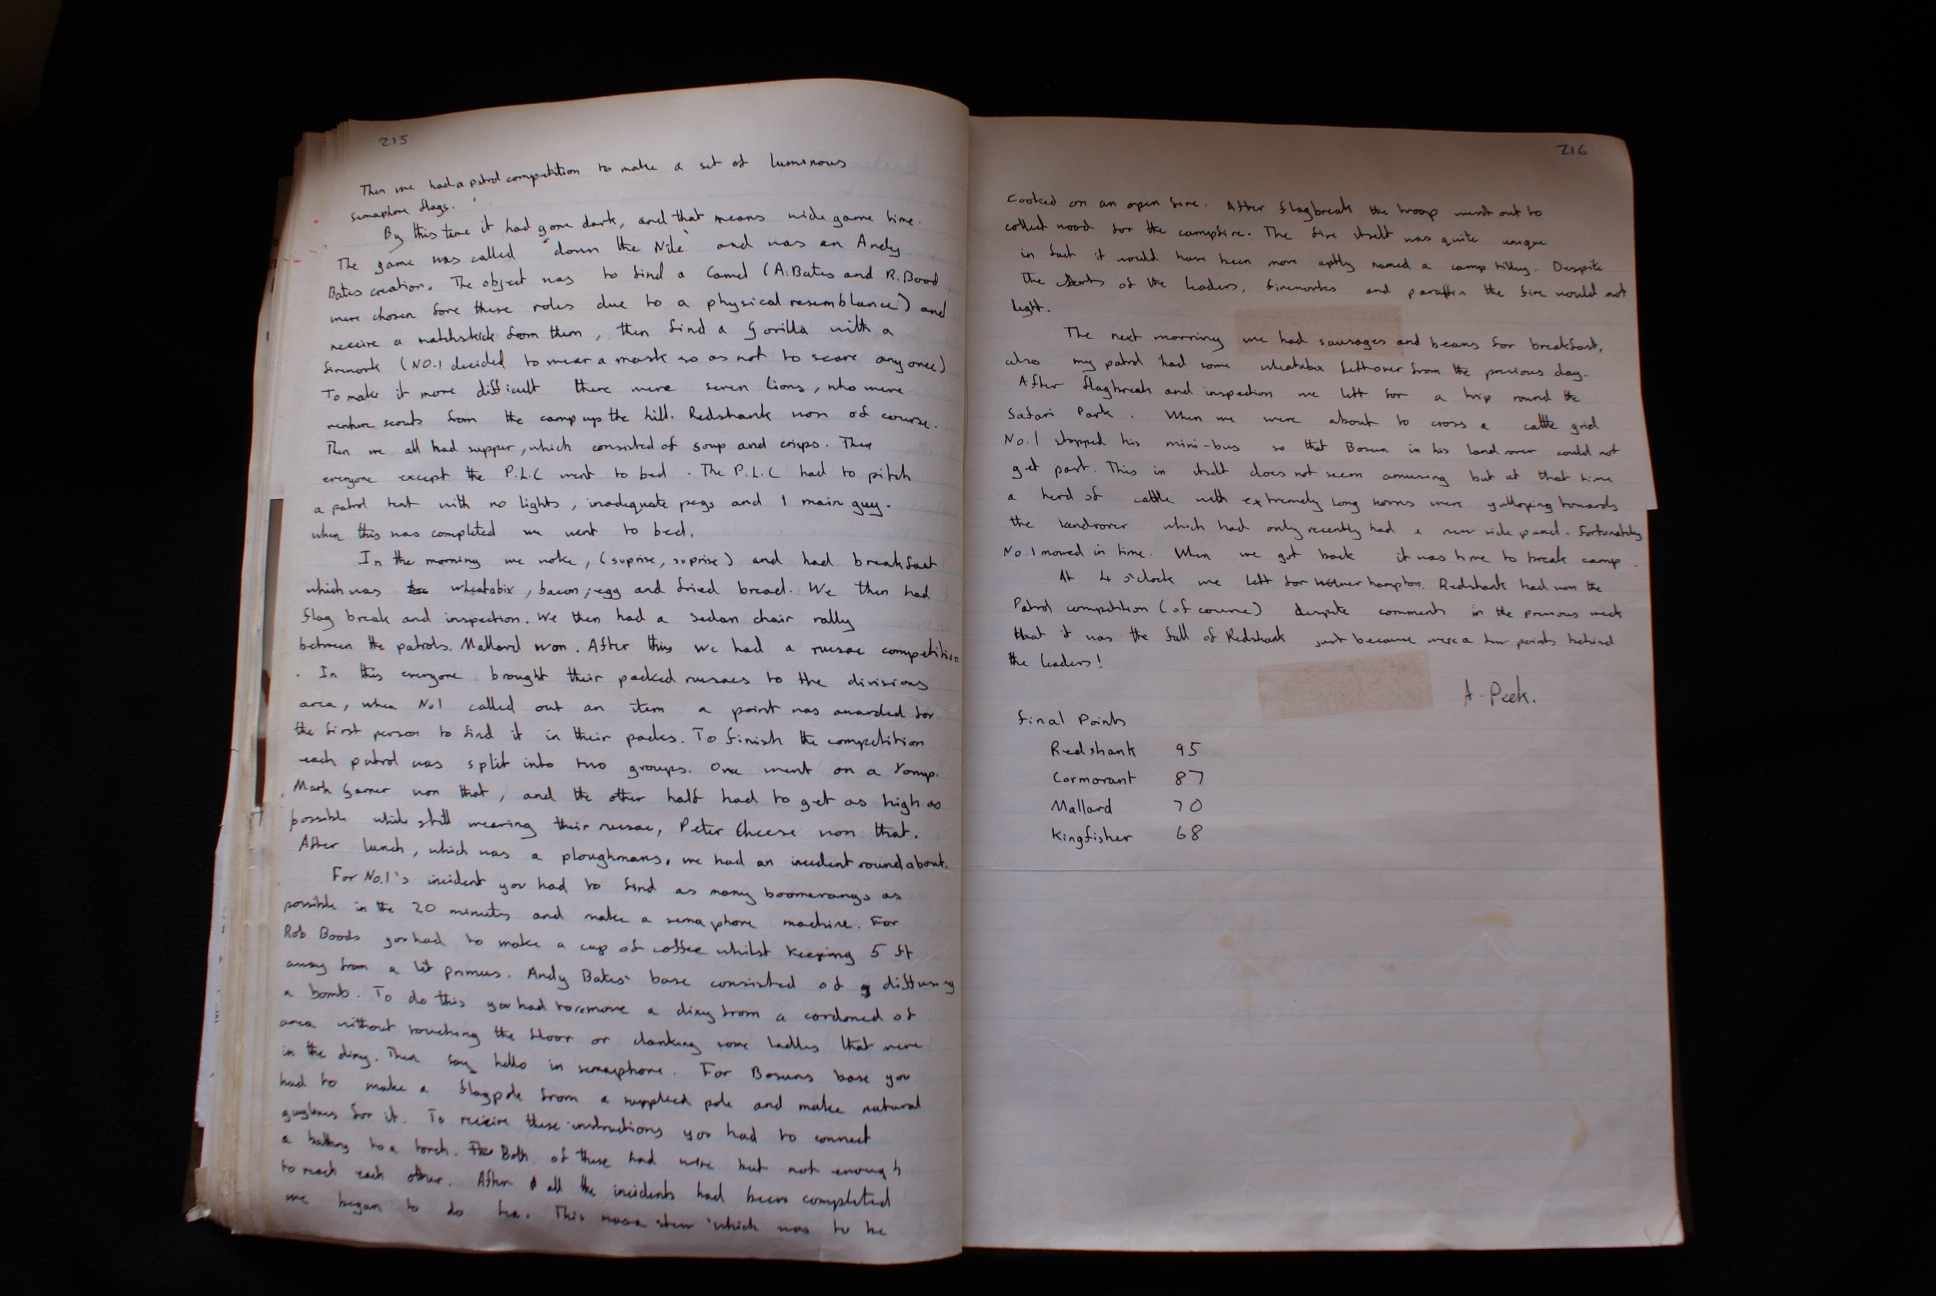 215
Then we had a patrol competition to make a set of luminous
semaphore flags.
By this time it had gone dark, and that means wide game time.
The game was called "down the Nile" and was an Andy
Bates creation. The object was to find a Camel (A.Bates and R.Bood
were chosen fore these roles due to a physical resemblance) and
receive a matchstick from them, then find a Gorilla with a
firework (NO.1 decided to wear a mask so as not to scare anyone)
To make it more difficult there were seven lions, who were
venture scouts from the camp up the hill. Redshank won of course.
Then we all had supper, which consisted of soup and crisps. Then
everyone except the P.L.C went to bed. The P.L.C had to pitch
a patrol tent with no lights, inadequate pegs and 1 main guy.
when this was completed we went to bed.
In the morning we woke, (suprise, suprise) and had breakfast
which was wheatabix, bacon, egg and fried bread. We then had
flag break and inspection. We then had a sedan chair rally
between the patrols. Mallard won. After this we had a rucsac competition
. In this everyone brought their packed rucsacs to the divisions
area, when No1 called out an item a point was awarded for
the first person to find it in their packs. To finish the competition
each patrol was split into two groups. One went on a Yomp.
Mark Garner won that, and the other half had to get as high as
possible while still wearing their rucsac, Peter Cheese won that.
After lunch, which was a ploughmans, we had an incident roundabout.
For No.1's incident you had to find as many boomerangs as
possible in the 20 minutes and make a semaphore machine. For
Rob Boods you had to make a cup of coffee whilst keeping 5 ft
away from a lit primus. Andy Bates' base consisted of diffusing
a bomb. To do this you had to remove a dixy from a cordoned of
area without touching the floor or clanking some ladles that were
in the dixy. Then say hello in semaphore. For Bosuns base you
had to make a flagpole from a supplied pole and make natural
guylines for it. To recieve these instructions you had to connect
a battery to a torch. Both of these had wire but not enough
to reach each other. After all the incidents had been completed
we began to do tea. This was a stew which was to be
216
cooked on an open fire. After flagbreak the troop went out to
collect wood for the campfire. The fire itself was quite unique
in fact it would have been more aptly named a camp Despite
the efforts of the leaders, fireworks and paraffin the fire would not
light.
The next morning we had sausages and beans for breakfast,
also my patrol had some wheatabix leftover from the previous day.
After flagbreak and inspection we left for a trip round the
Safari Park. When we were about to cross a cattle grid
No.1 stopped his mini-bus so that Bosun in his land rover could not
get past. This in itself does not seem amusing but at that time
a herd of cattle with extremely long horns were galloping towards
the landrover which had only recently had a new side panel. Fortunately
No.1 moved in time. When we got back it was time to break camp.
At 4 o'clock we left for Wolverhampton. Redshank had won the
Patrol competition (of course) despite comments in the previous week
that it was the fall of Redshank just because were a few points behind
the leaders!
A. Peek.
Final Points
Redshank 95
Cormorant 87
Mallard 70
Kingfisher 68